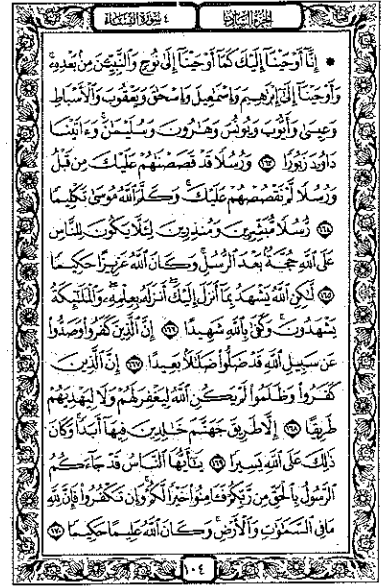 الجزء السادس
٤ سورة النساء
۞ إِنَّآ أَوْحَيْنَآ إِلَيْكَ كَمَآ أَوْحَيْنَآ إِلَىٰ نُوحٍ وَٱلنَّبِيِّـۧنَ مِنۢ بَعْدِهِۦ
وَأَوْحَيْنَآ إِلَىٰٓ إِبْرَٰهِيمَ وَإِسْمَٰعِيلَ وَإِسْحَٰقَ وَيَعْقُوبَ وَٱلْأَسْبَاطِ
وَعِيسَىٰ وَأَيُّوبَ وَيُونُسَ وَهَٰرُونَ وَسُلَيْمَٰنَ وَءَاتَيْنَا
دَاوُۥدَ زَبُورًا ١٦٣ وَرُسُلًا قَدْ قَصَصْنَٰهُمْ عَلَيْكَ مِن قَبْلُ
وَرُسُلًا لَّمْ نَقْصُصْهُمْ عَلَيْكَ وَكَلَّمَ ٱللَّهُ مُوسَىٰ تَكْلِيمًا
١٦٤ رُّسُلًا مُّبَشِّرِينَ وَمُنذِرِينَ لِئَلَّا يَكُونَ لِلنَّاسِ
عَلَى ٱللَّهِ حُجَّةٌۢ بَعْدَ ٱلرُّسُلِ وَكَانَ ٱللَّهُ عَزِيزًا حَكِيمًا
١٦٥ لَّٰكِنِ ٱللَّهُ يَشْهَدُ بِمَآ أَنزَلَ إِلَيْكَ أَنزَلَهُۥ بِعِلْمِهِۦ وَٱلْمَلَٰٓئِكَةُ
يَشْهَدُونَ وَكَفَىٰ بِٱللَّهِ شَهِيدًا ١٦٦ إِنَّ ٱلَّذِينَ كَفَرُوا۟ وَصَدُّوا۟
عَن سَبِيلِ ٱللَّهِ قَدْ ضَلُّوا۟ ضَلَٰلًۢا بَعِيدًا ١٦٧ إِنَّ ٱلَّذِينَ
كَفَرُوا۟ وَظَلَمُوا۟ لَمْ يَكُنِ ٱللَّهُ لِيَغْفِرَ لَهُمْ وَلَا لِيَهْدِيَهُمْ
طَرِيقًا ١٦٨ إِلَّا طَرِيقَ جَهَنَّمَ خَٰلِدِينَ فِيهَآ أَبَدًا وَكَانَ
ذَٰلِكَ عَلَى ٱللَّهِ يَسِيرًا ١٦٩ يَٰٓأَيُّهَا ٱلنَّاسُ قَدْ جَآءَكُمُ
ٱلرَّسُولُ بِٱلْحَقِّ مِن رَّبِّكُمْ فَـَٔامِنُوا۟ خَيْرًا لَّكُمْ وَإِن تَكْفُرُوا۟ فَإِنَّ لِلَّهِ
مَا فِى ٱلسَّمَٰوَٰتِ وَٱلْأَرْضِ وَكَانَ ٱللَّهُ عَلِيمًا حَكِيمًا ١٧٠
١٠٤